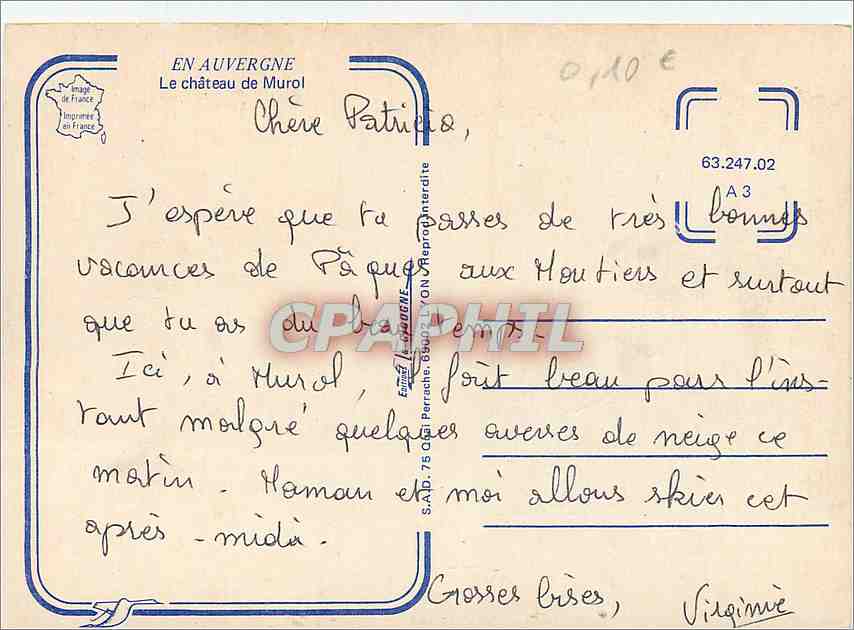 EN AUVERGNE
Le château de Murol
Image
de France
Imprimée
en France
0,10 €
63.247.02
A 3
Chère Patricia,
J'espère que tu passes de très bonnes
vacances de Pâques aux Moutiers et surtout
que tu as du beau temps.
Ici, à Murol, il fait beau pour l'ins-
tant malgré quelques averses de neige ce
matin. Maman et moi allons skier cet
après-midi.
Grosses bises,
Virginie
Editions la CIGOGNE
S.A.I.D. 75 Quai Perrache. 69002 LYON Reprod. Interdite
CPAPHIL